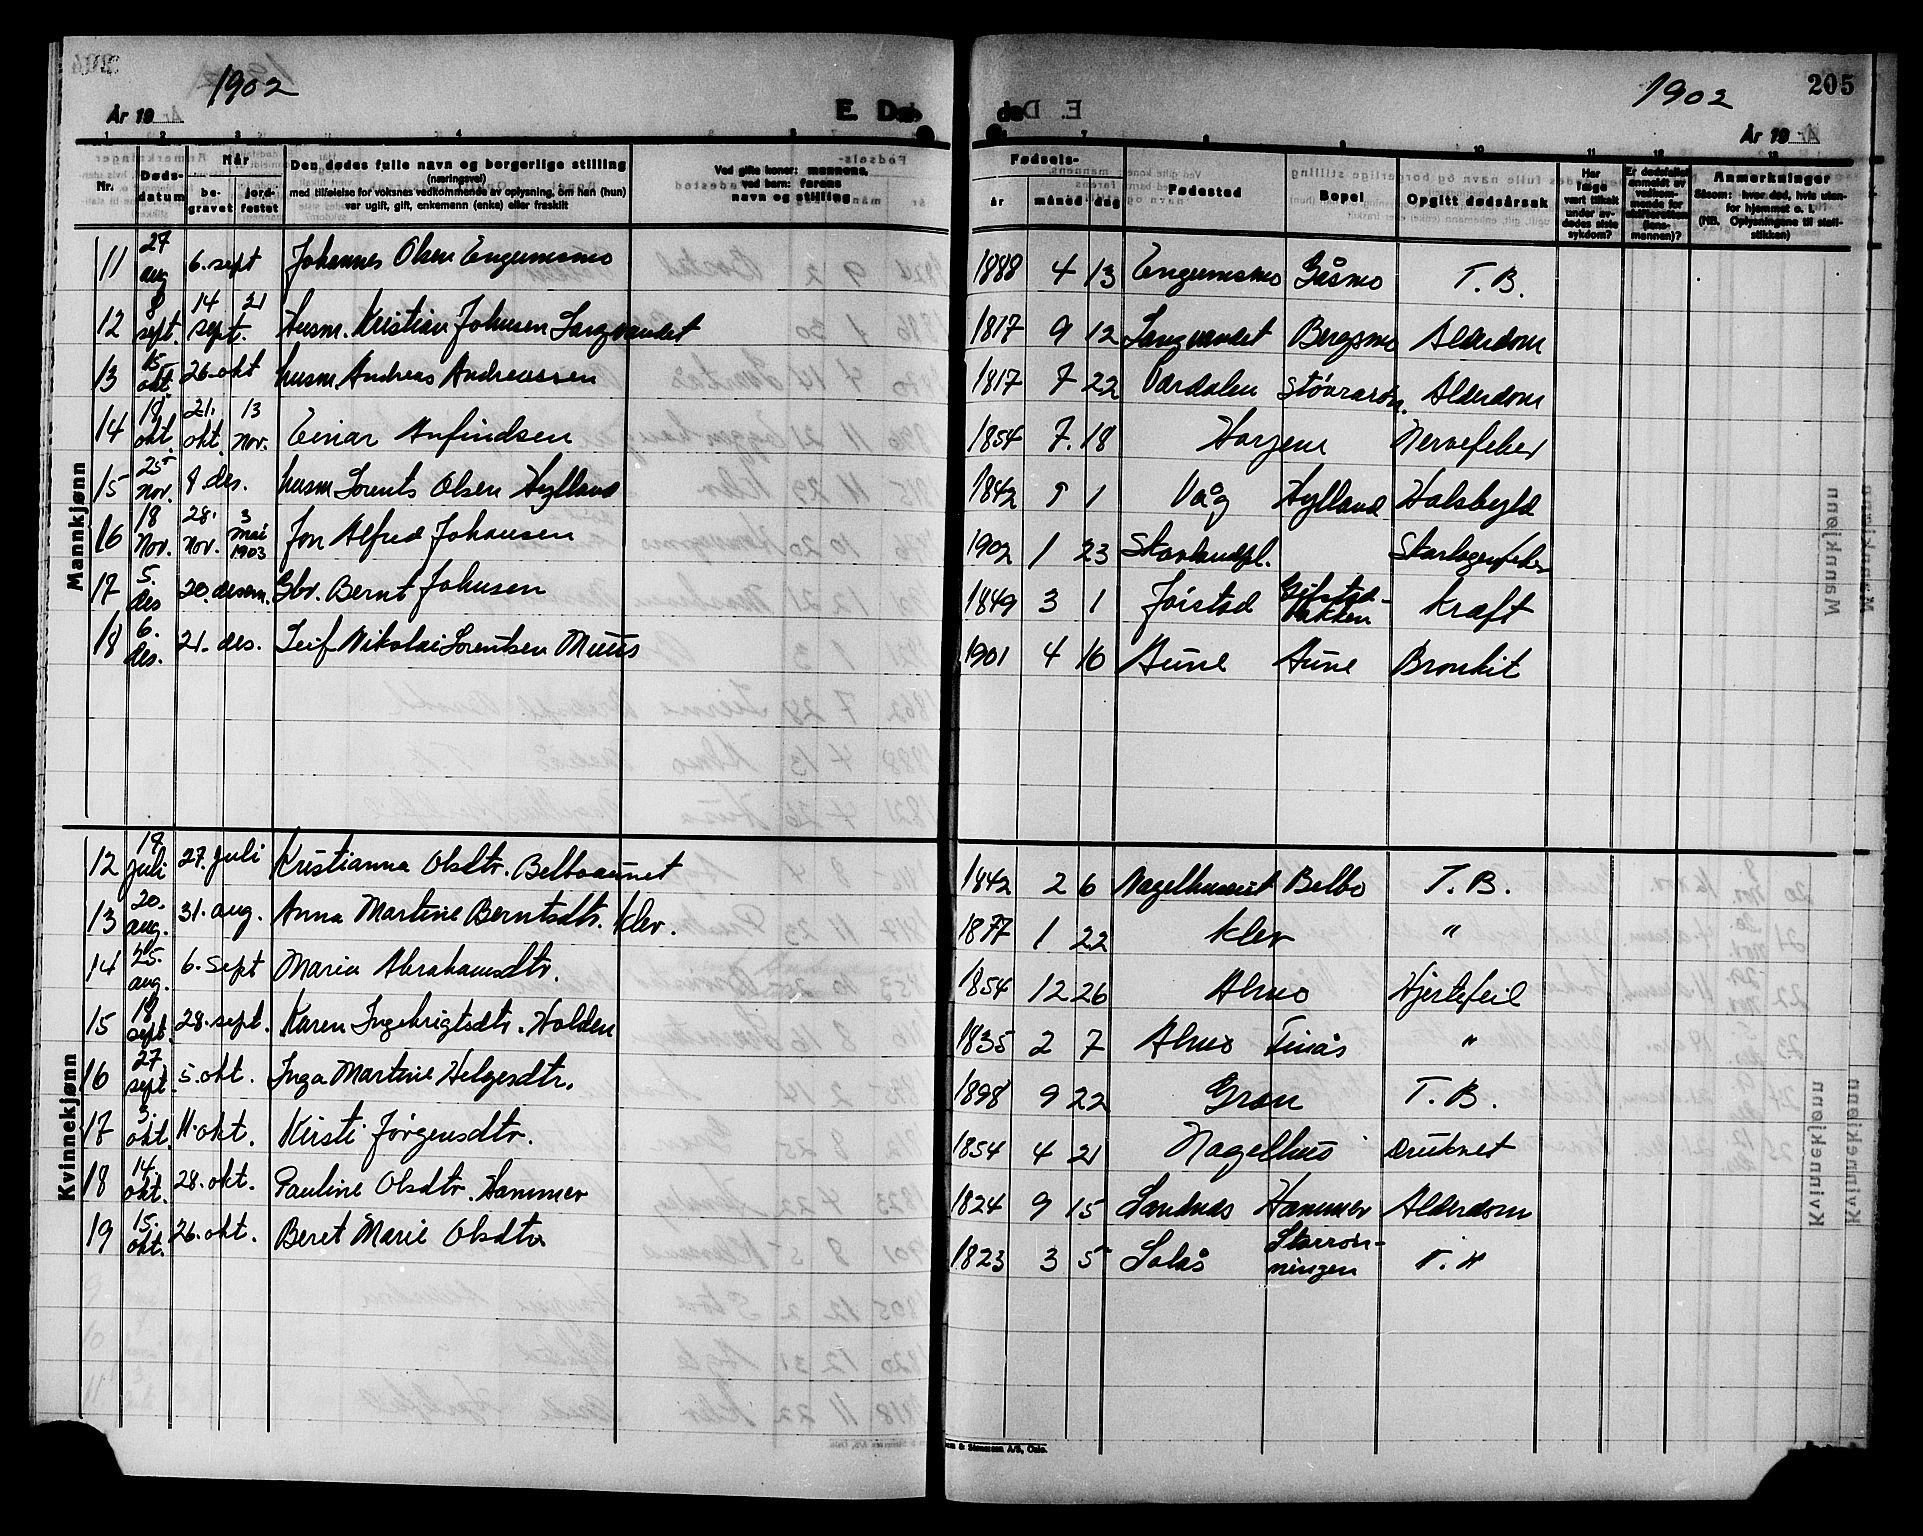 1902
År 19
E. Dø
1 2 3 4 5 6
Nr.
Døds-
datum
Når
be-
gravet
jord-
festet
Den dødes fulle navn og borgerlige stilling
(næringsvei)
med tilføielse for voksnes vedkommende av oplysning, om han (hun)
var ugift, gift, enkemann (enke) eller fraskilt
Ved gifte koner: mannens,
ved barn: farens
navn og stilling
Mannkjønn
11 27 aug 6. sept Johannes Olsen Engumsmo
12 8 sept. 14 sept. 21 Husm. Kristian Johnsen Langvandet
13 15 okt. 26. okt husm Andreas Andreassen
14 18 okt. 21. okt. 13 nov. Einar Anfindsen
15 25 nov. 8 des. husm Lorents Olsen Hylland
16 18 nov. 28. nov. 3 mai 1903 Jon Alfred Johansen
17 5. des 20. desem. Gbr. Bernt Johnsen
18 6. des. 21. des. Leif Nikolai Lorentsen Muus
Kvinnekjønn
12 19 juli 27. juli Kristianna Olsdtr. Belboaunet
13 20. aug. 31. aug. Anna Martine Berntsdtr. Klev.
14 25. aug. 6. sept Maria Abrahamsdtr.
15 18 sept. 28. sept. Karen Ingebrigtsdtr. Holden
16 27 sept. 5. okt. Inga Martine Helgesdtr.
17 3. okt. 11. okt. Kirsti Jørgensdtr.
18 14. okt. 28. okt. Pauline Olsdtr. Hammer
19 15. okt. 26. okt. Beret Marie Olsdtr
1902
205
de
År 19
7 8 9 10 11 12 13
Fødsels-
år
måned
dag
Fødested
Bopel
Opgitt dødsårsak
Har
læge
vært tilkalt
under av-
dødes siste
sykdom?
Er dødsfallet
anmeldt av
vedkom-
mende for
skifteretten
(lens-
mannen)?
Anmerkninger
Såsom: hvor død, hvis uten-
for hjemmet o. l.
(NB. Oplysningene til stati-
stikken)
1888 4 13 Engumsmo Gåsmo T. B.
1817 9 12 Langvandet Bergsmo Alderdom
1817 7 22 Værdalen Alderdom
1854 7. 18 Nervefeber
1842 9 1 Våg Hylland Halsbyld
1902 1 23 Skavlandpl. Skarlagenfeber
1849 3 1 Joistad Gifstad- bakken Kræft
1901 4 16 Aune Aune Bronkit
1842 2 6 Belbo T. B.
1877 1 22 Klev "
1854 12 26 Almo Hjertefeil
1835 2 7 Almo Finås "
1898 9 22 Grøn T. B.
1854 4 21 Nagelhus Druknet
1824 9 15 Landnes Hammer Alderdom
1823 3 5 Solås Storrøn- ningen
& Stenersen A/S, Oslo.